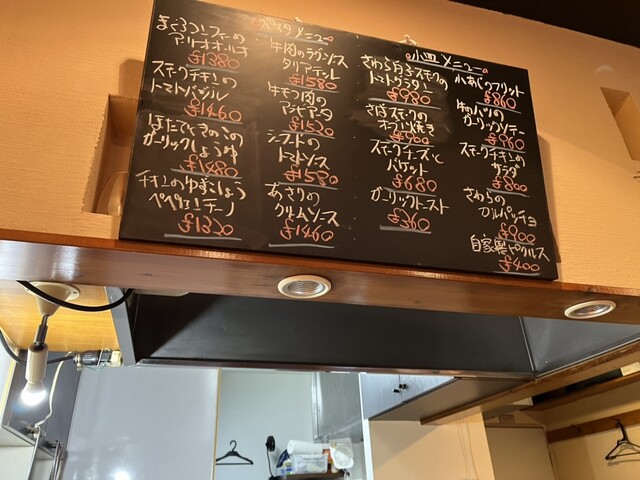 パスタメニュー
まぐろコンフィーの
アーリオオーリオ
¥1380
スモークチキンの
トマトバジル
¥1460
ほたてときのこの
ガーリックしょうゆ
¥1480
チキンのゆずこしょう
ペペロンチーノ
¥1320
牛肉のラグソース
タリアテッレ
¥1580
牛もつ肉の
アラビアータ
¥1520
シーフードの
トマトソース
¥1580
あさりの
クリームソース
¥1460
小皿メニュー
さわら スモークの
トマトグラタン
¥980
さばスモークの
オーブン焼き
¥900
スモークチーズと
バゲット
¥680
ガーリックトースト
¥360
小あじのフリット
¥860
牛ハツの
ガーリックソテー
¥960
スモークチキンの
サラダ
¥800
さわらの
カルパッチョ
¥900
自家製ピクルス
¥400